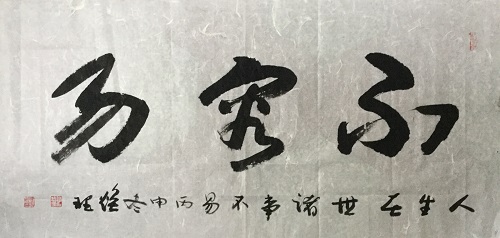 不容易
人生在世诸事不易丙申冬